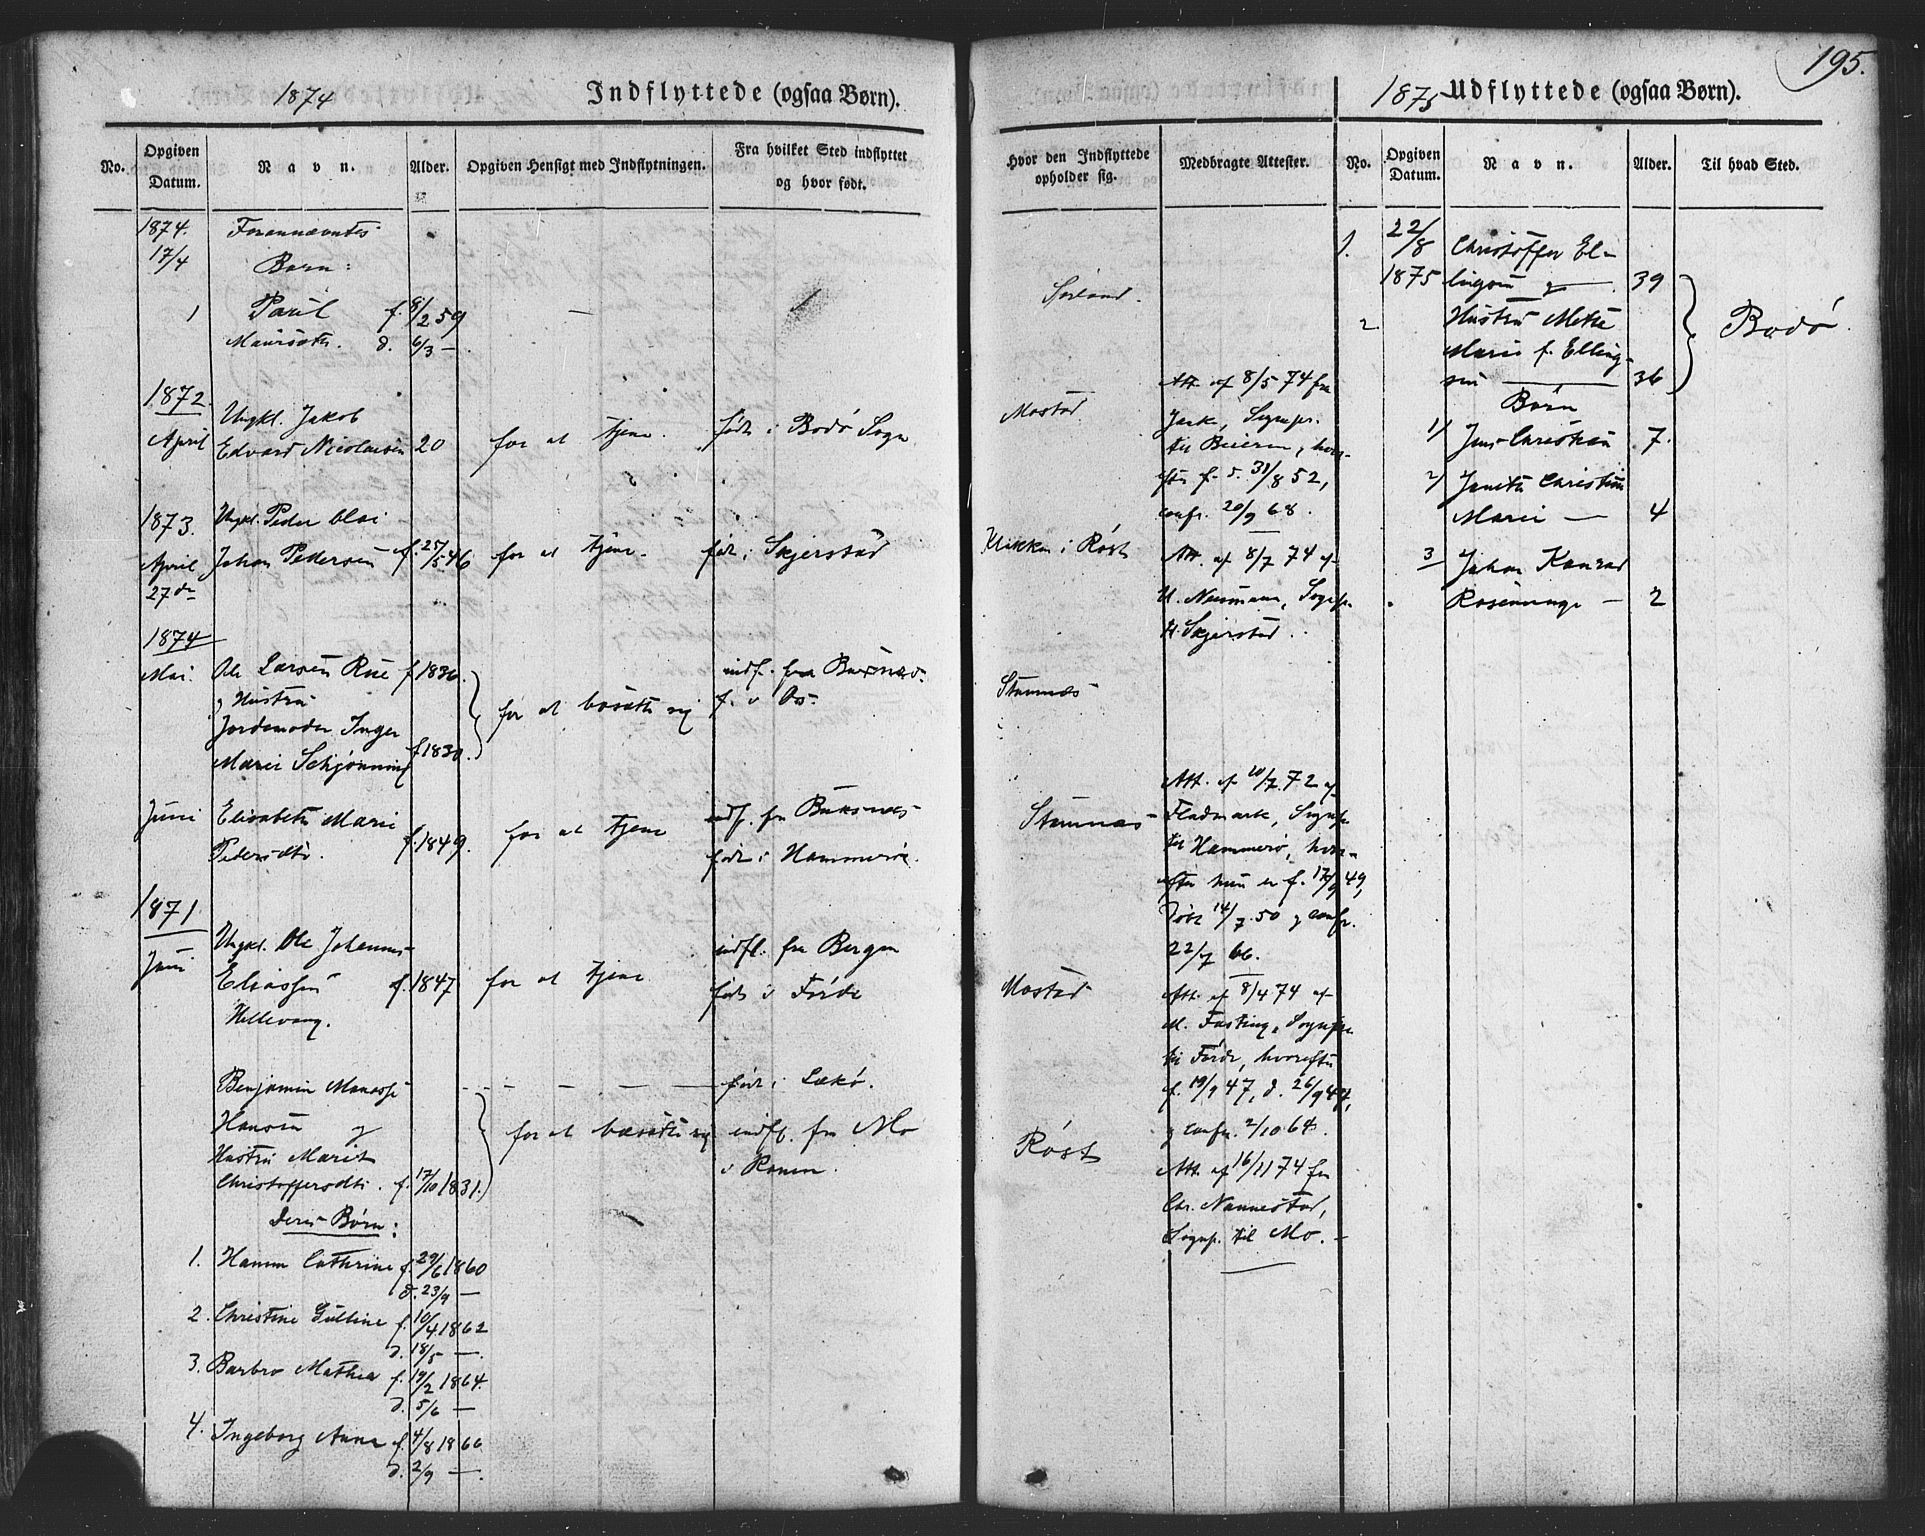 195.
1874 Indflyttede (ogsaa Børn).
No.
Opgiven Datum.
Navn.
Alder.
Opgiven Hensigt med Indflytningen.
Fra hvilket Sted indflyttet
og hvor født.
1874.
17/4
Forennævntes
Børn:
1 Paul f. 8/2 59
d. 6/3 —
—
1872.
April
Ungkl. Jakob
Edvard Nicolaisen 20
for at tjene.
født i Bodø Sogn
1873.
April
27de
Ungkl. Peder
Johan Pedersen f. 25/5 46
for at tjene.
født i Skjerstad
1874
Mai.
Ole Larsen f. 1836.
og Hustru
Jordemoder Inger
Marie Schjønning f. 1830.
for at bosætte sig
indfl. fra Buxnæs
f. i Os.
Juni
Elisabeth Marie
Pedersdtr. f. 1849.
for at tjene
indf. fra Buksnæs
født i Hammerøe.
1871.
Juni
Ungkl. Ole Johannes
Eliassen f. 1847
Hellevang.
for at tjene
indfl. fra Bergen
født i Førde
Benjamin Manasse
Hansen og
Hustru Marit
Christoffersdtr. f. 17/10 1831.
for at bosætte sig
født i Lekø.
indfl. fra Mo
i Ranen.
deres Børn:
1. Hanna Cathrine f. 29/6 1860
d. 23/9 —
2. Christine Gulline f. 10/4 1862
d. 18/5 —
3. Barbro Mathea f. 19/2 1864.
d. 5/6 —
4. Ingeborg Anna f. 4/8 1866
d. 2/9 —
Hvor den Indflyttede
opholder sig.
Medbragte Attester.
Sørland.
Mostad
Att. af 8/5 74 fra
Sognepr.
til Beieren, hvor-
efter f. d. 31/8 52,
confr. 20/9 68.
i Røst
Att. af 8/7 74 af
Neumann, Sognepr.
t. Skjerstad.
Stamnæs
Stamnæs
Att. af 10/7 72 af
Fladmark, Sognepr.
til Hammerø, hvor-
efter hun er f. 17/9 49,
døbt 14/7 50 og confr.
22/7 66.
Mostad
Att. af 8/4 74 af
M. Fasting, Sognepr.
til Førde, hvorefter
f. 19/9 47, d. 26/9 47,
og confr. 2/10 64.
Røst
Att. af 16/11 74 fra
Chr. Nannestad,
Sognep. til Mo. —
1875 Udflyttede (ogsaa Børn).
No.
Opgiven
Datum.
Navn.
Alder.
Til hvad Sted.
1.
22/8
1875
Christoffer El-
lingsen og — 39
2 Hustru Mette
Marie f. Elling-
sen — 36
Bodø.
Børn
1) Jens Christian 7.
2) Christine
Marie — 4
3 Johan Konrad
Rosenvinge — 2